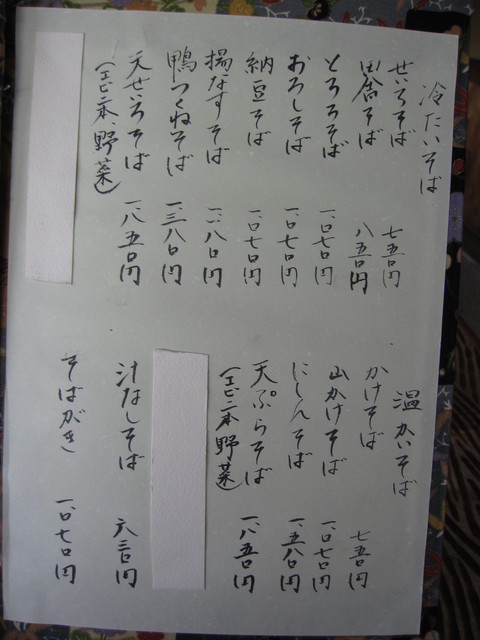 冷たいそば
せいろそば 七五〇円
田舎そば 八五〇円
とろろそば 一、〇七〇円
おろしそば 一、〇七〇円
納豆そば 一、〇七〇円
揚なすそば 一、一八〇円
鴨つくねそば 一、三八〇円
天せいろそば 一、八五〇円
(エビ二本野菜)
温かいそば
かけそば 七五〇円
山かけそば 一、〇七〇円
にしんそば 一、五八〇円
天ぷらそば 一、八五〇円
(エビ二本野菜)
汁なしそば 六三〇円
そばがき 一、〇七〇円